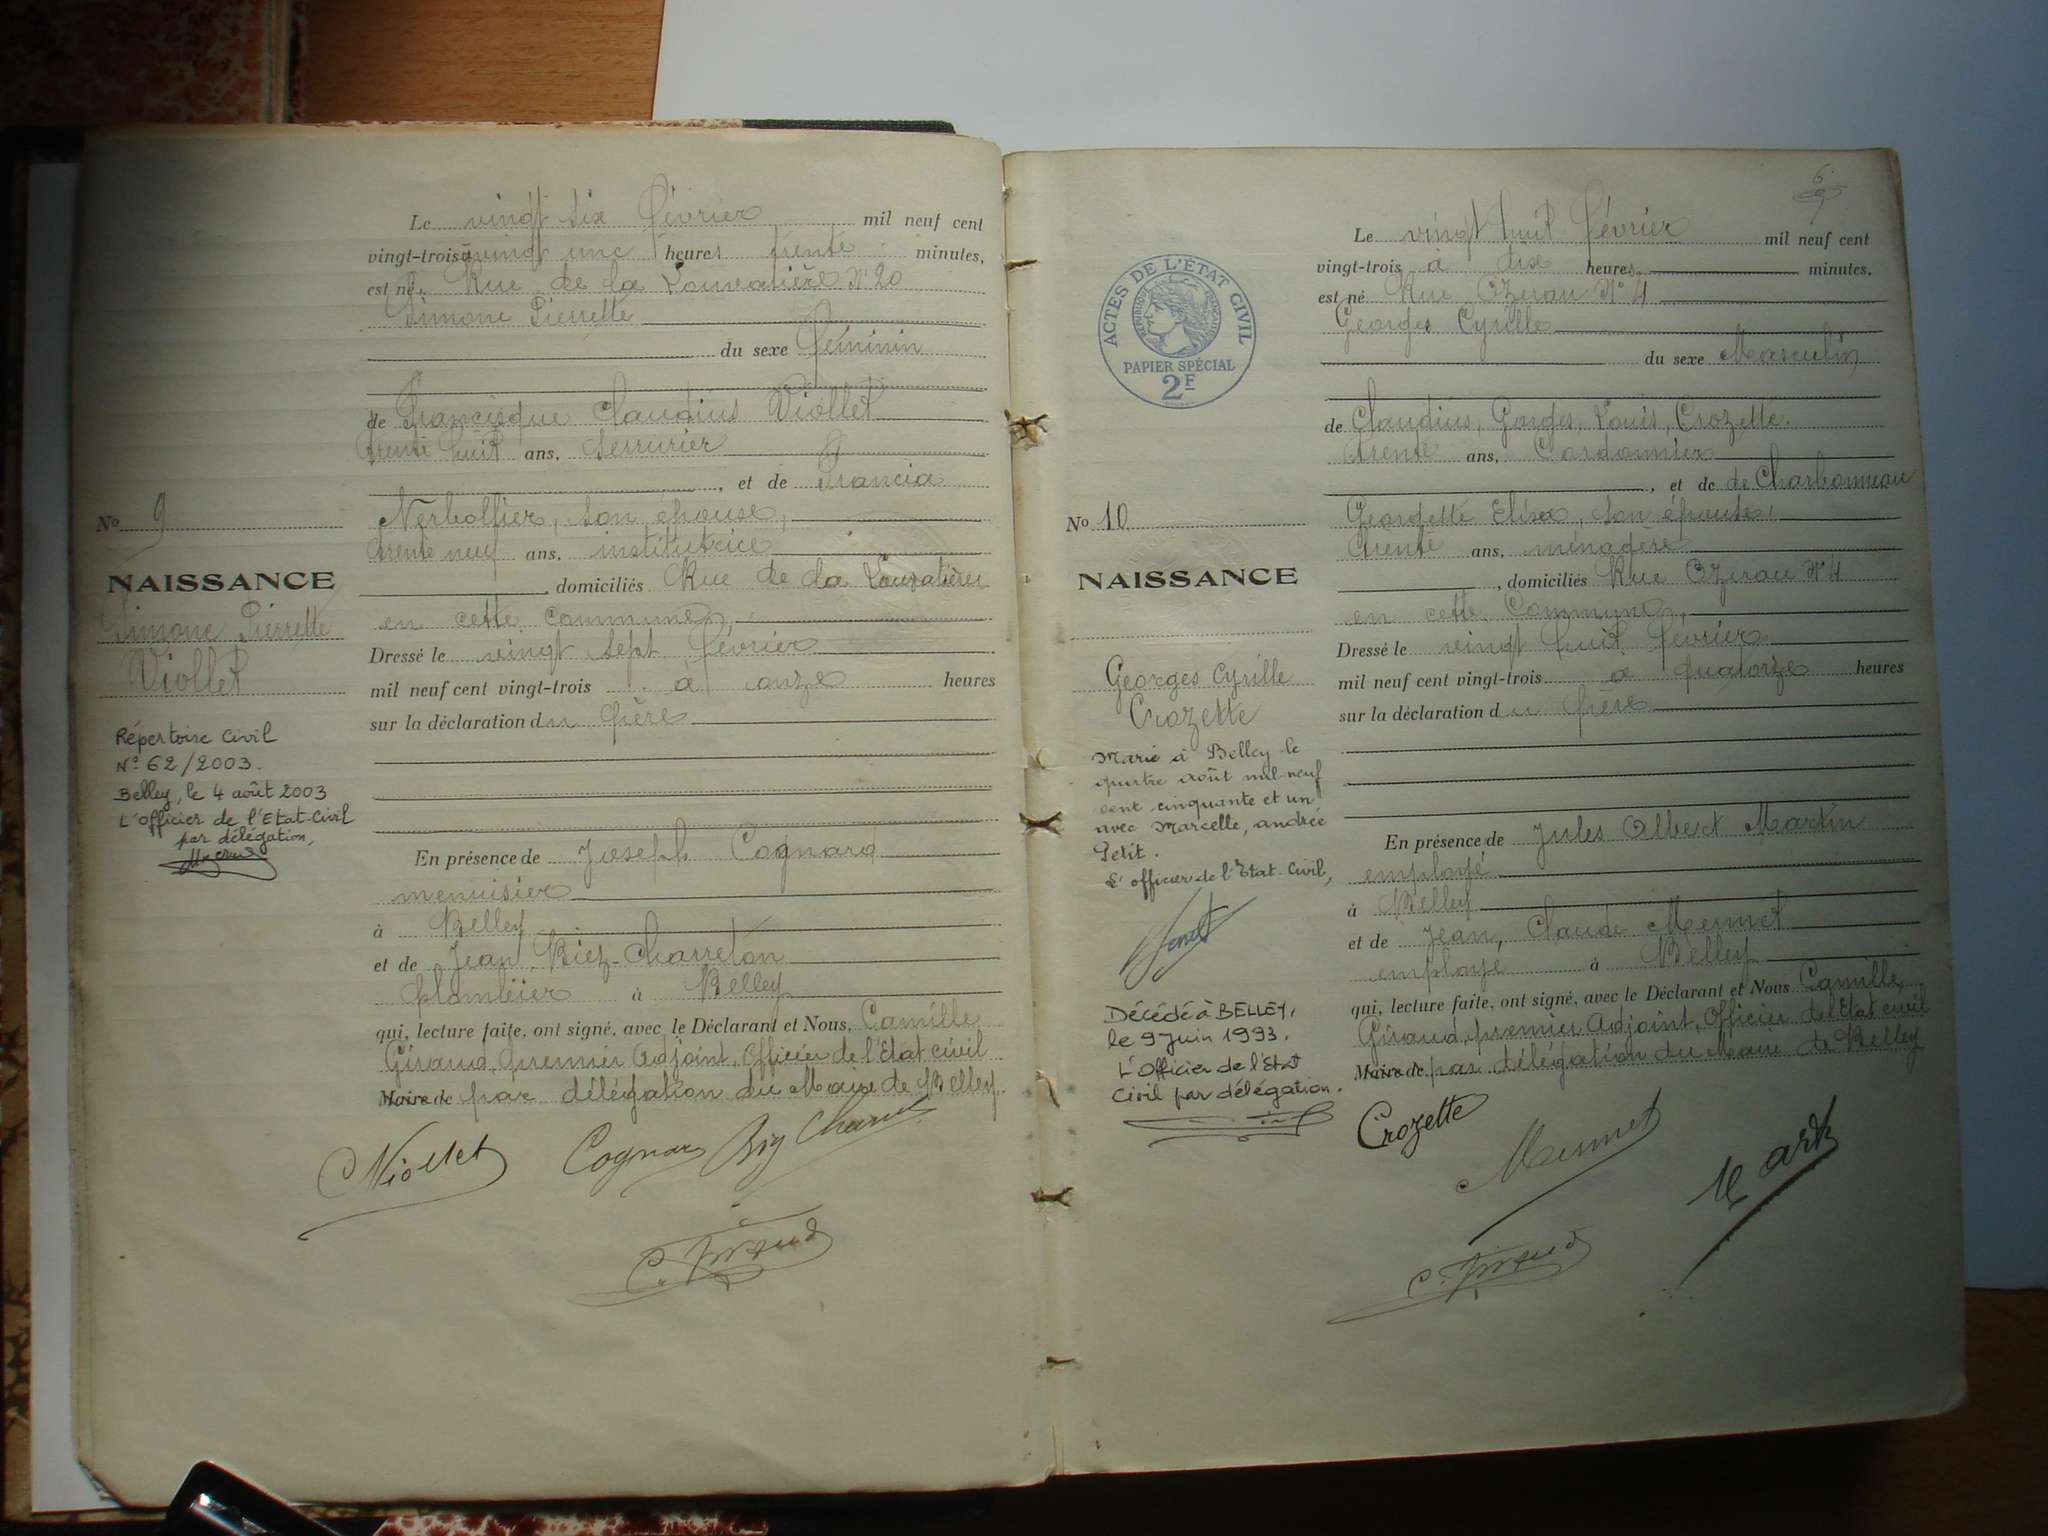 Le vingt six février mil neuf cent
vingt-trois à vingt une heures trente minutes,
est né Rue de la N° 20
Simone Pierrette
du sexe féminin
de Francisque Claudius Viollet
trente huit ans, Serrurier
, et de Francia
son épouse,
trente neuf ans, institutrice
, domiciliés Rue de la
en cette commune,
Dressé le vingt sept février
mil neuf cent vingt-trois à onze heures
sur la déclaration du père
En présence de Joseph Cognard
menuisier
à Belley
et de Jean Biez-Charreton
plombier à Belley
qui, lecture faite, ont signé, avec le Déclarant et Nous, Camille
Giraud, premier Adjoint, Officier de l'Etat civil
Maire de par délégation du Maire de Belley.
Viollet Cognard
C. Giraud
No 9
NAISSANCE
Simone Pierrette
Viollet
Répertoire Civil
N° 62/2003.
Belley, le 4 août 2003
L'Officier de l'Etat-Civil
par délégation,
ACTES DE L'ÉTAT CIVIL
RÉPUBLIQUE FRANÇAISE
PAPIER SPÉCIAL
2F
No 10
NAISSANCE
Georges Cyrille
Crozette
Marié à Belley le
quatre août mil-neuf
cent cinquante et un
avec Marcelle, andrée
Petit.
L'officier de l'Etat-Civil,
Décédé à BELLEY,
le 9 Juin 1993.
L'Officier de l'Etat
Civil par délégation.
6
Le vingt huit février mil neuf cent
vingt-trois à dix heures minutes,
est né Rue Ozerau N° 4
Georges Cyrille
du sexe Masculin
de Claudius, Georges, Louis, Crozette.
trente ans, Cordonnier
, et de de Charbonneau
Georgette Elisa, son épouse,
trente ans, ménagère
, domiciliés Rue Ozerau N° 4
en cette Commune,
Dressé le vingt huit février
mil neuf cent vingt-trois à quatorze heures
sur la déclaration du père
En présence de Jules Albert Martin
employé
à Belley
et de Jean, Claude Mermet
employé à Belley
qui, lecture faite, ont signé, avec le Déclarant et Nous Camille
Giraud, premier Adjoint, Officier de l'Etat civil
Maire de par délégation du Maire de Belley
Crozette
Mermet
C. Giraud